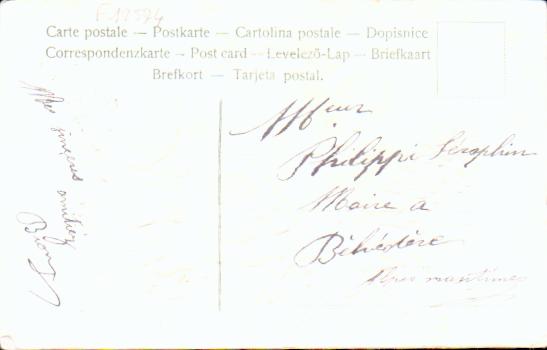 F 12574
Carte postale — Postkarte — Cartolina postale — Dopisnice
Correspondenzkarte — Post card — Levelező-Lap — Briefkaart
Brefkort — Tarjeta postal.
Mes sinçeres amitiéz
Mʳ
Philippi Séraphin
Maire a
Bélvédère
Alpes maritimes